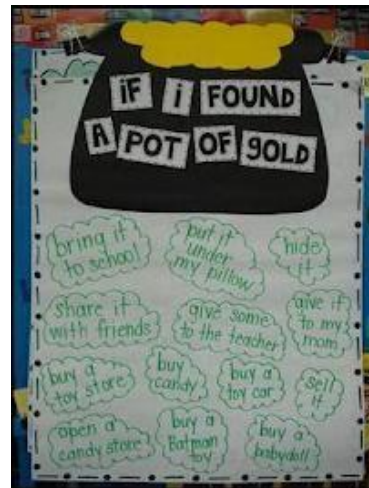 iF i FOUND
A POT OF gOLD
bring it
to school
put it
under
my pillow
hide
it
share it
with friends
give some
to the teacher
give it
to my
mom
buy a
toy store
buy
candy
buy a
toy car
sell
it
open a
candy store
buy a
Batman
toy
buy a
babydoll